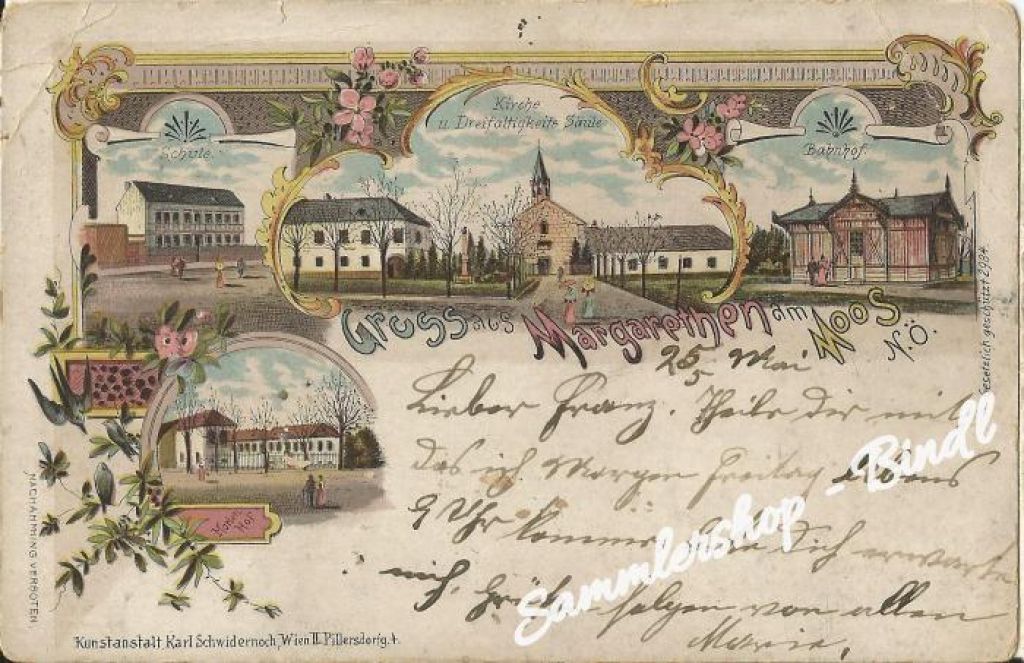 Schule.
Kirche
u. Dreifaltigkeits Säule
Bahnhof.
Gruss aus Margarethen am Moos N.Ö.
Gesetzlich geschützt 2984
25/5 Mai
Lieber Franz. Theile dir mit
das ich Morgen Freitag Abens
9 Uhr komme. Dich erwarte
mich. Grüße folgen von allen
Marie.
Hof
NACHAHMUNG VERBOTEN
Kunstanstalt Karl Schwidernoch, Wien II. Pillersdorfg. 4.
Sammlershop - Bindl